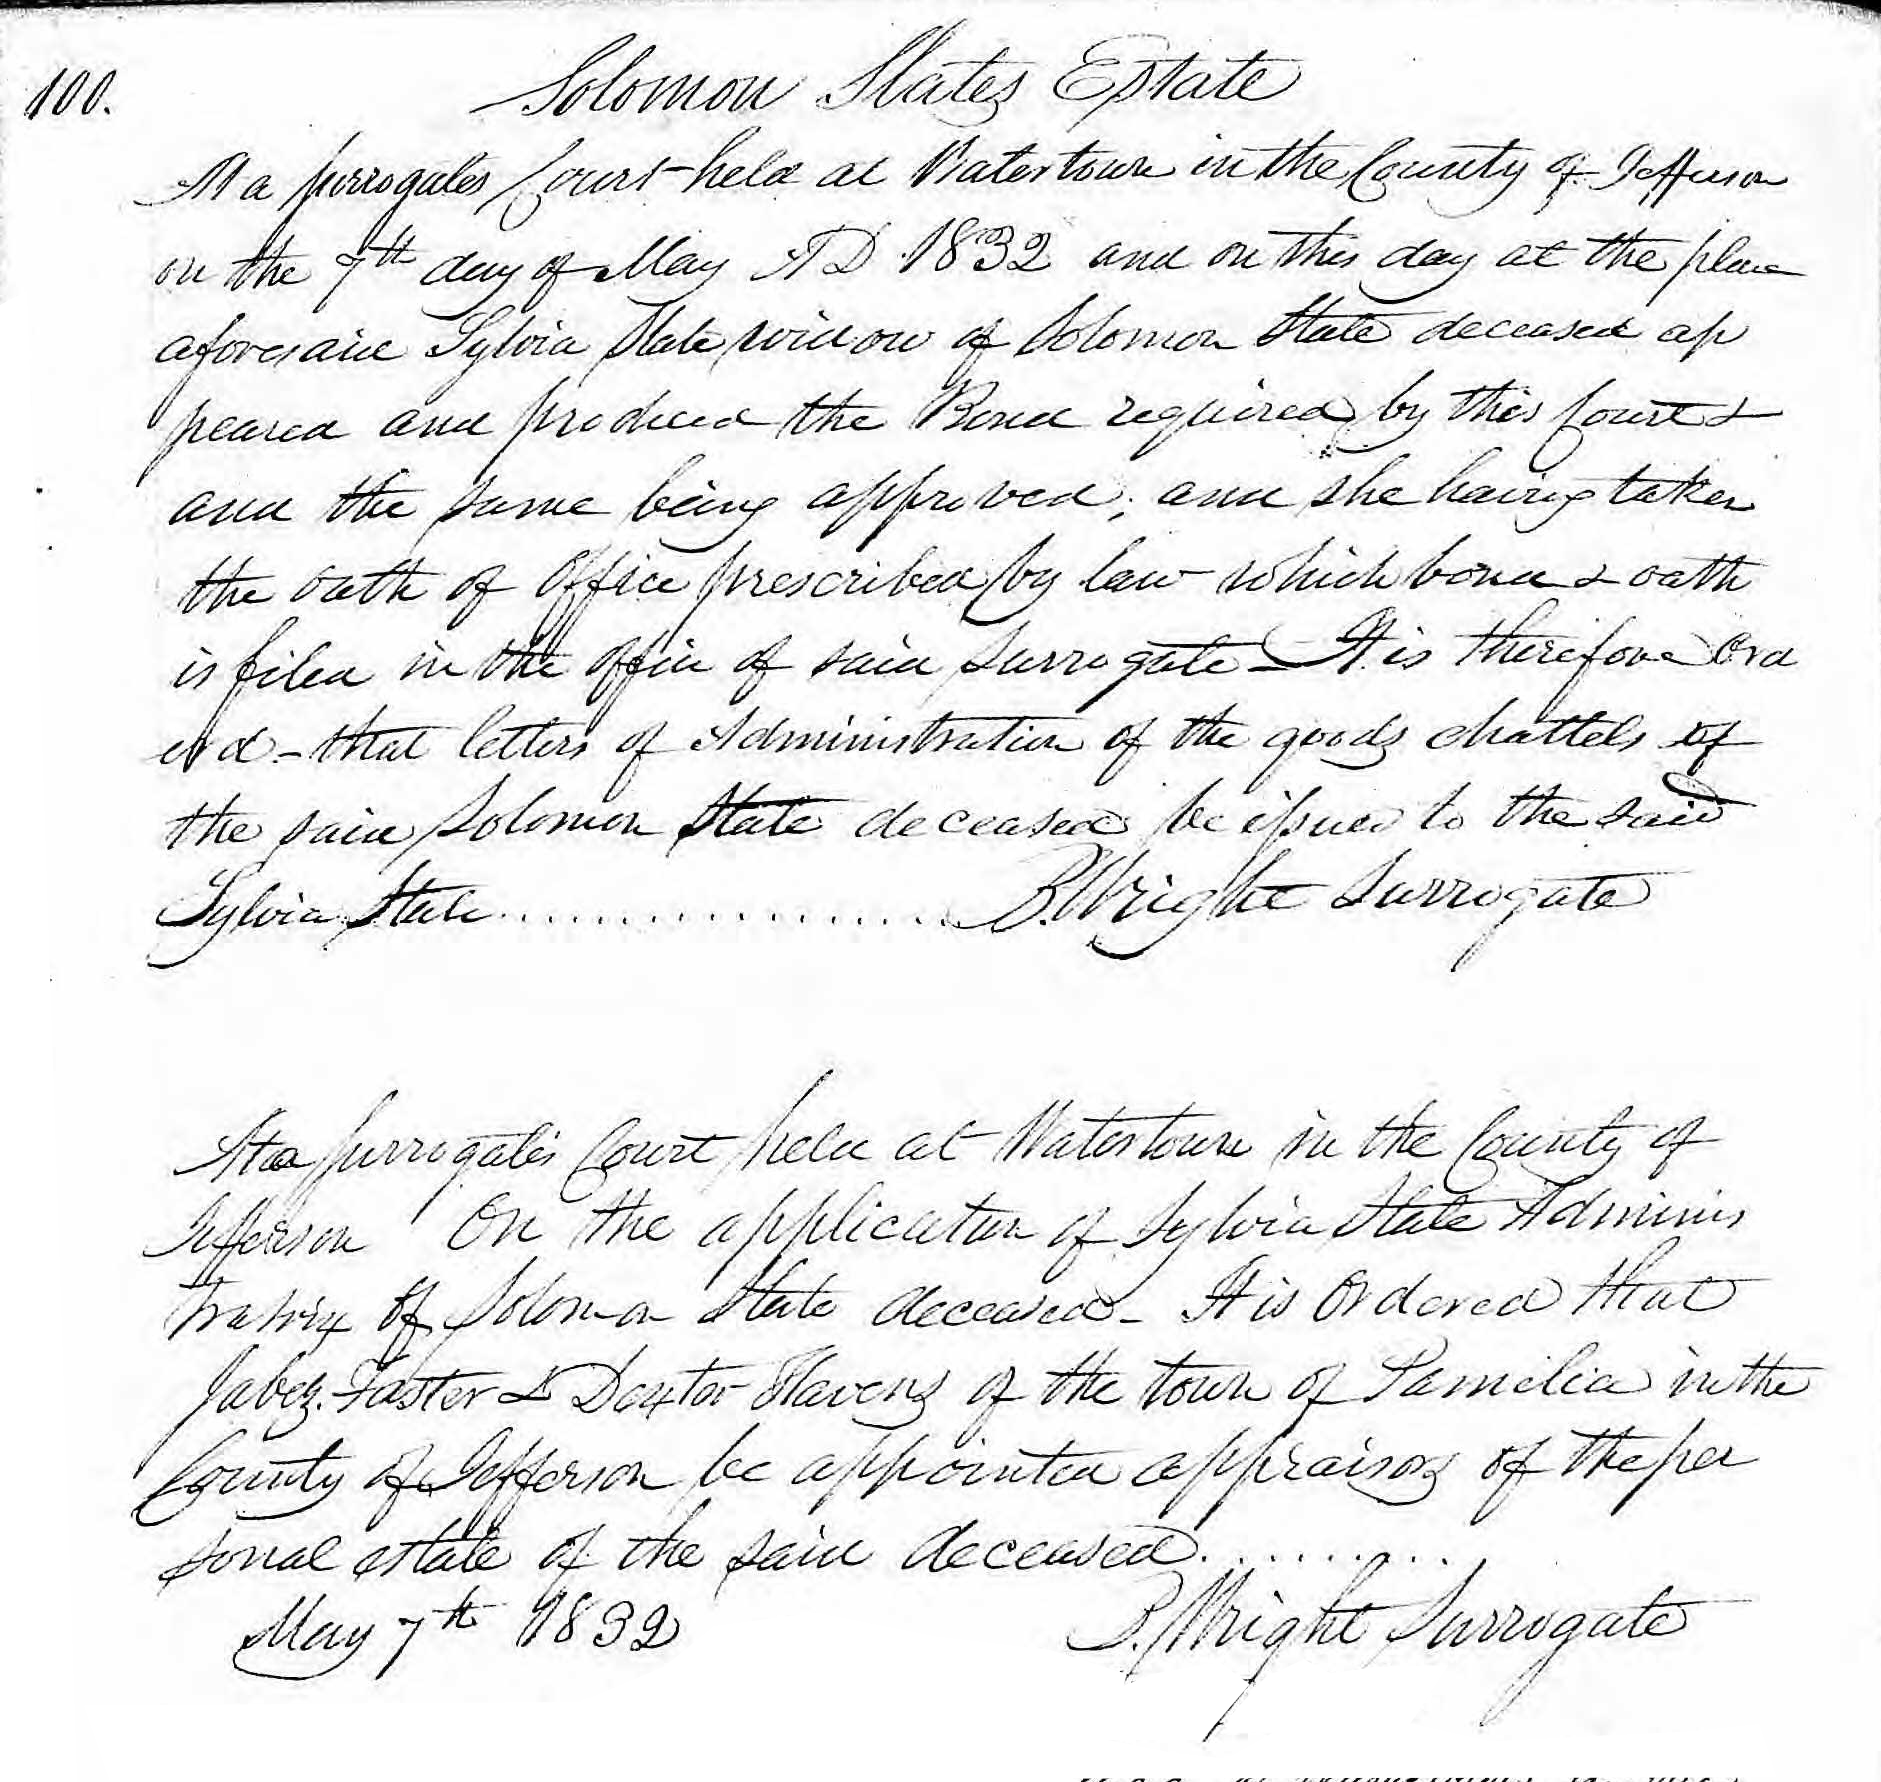 100.
Solomon States Estate
At a Surrogates Court held at Watertown in the County of Jefferson
on the 7th day of May A D 1832 and on this day at the place
aforesaid Sylvia State widow of Solomon State deceased ap
peared and produced the Bond required by this Court &
and the same being approved; and she having taken
the oath of office prescribed by law which bond & oath
is filed in the office of said Surrogate - It is therefore Ord
erd - that letters of Administration of the goods chattels of
the said Solomon State deceased be issued to the said
Sylvia State .................... B. Wright Surrogate
At a Surrogates Court held at Watertown in the County of
Jefferson On the application of Sylvia State Adminis
tratrix of Solomon State deceased - It is Ordered that
Jabez Foster & Dexter Havens of the town of Pamelia in the
County of Jefferson be appointed appraisors of the per
sonal estate of the said deceased ..........
May 7th 1832 B. Wright Surrogate